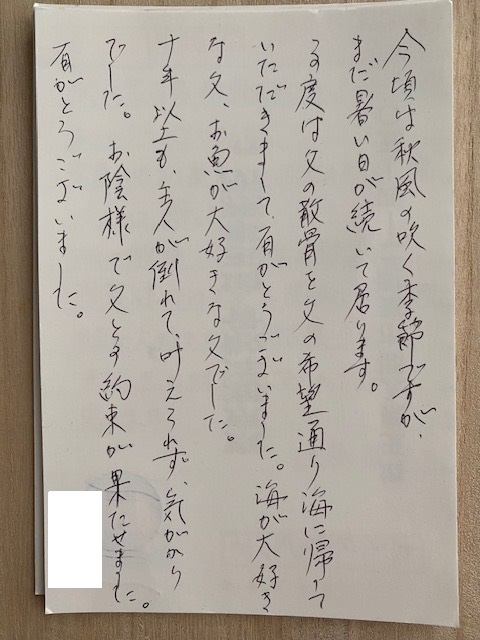 今頃は秋風の吹く季節ですが、
まだ暑い日が続いて居ります。
この度は父の散骨を父の希望通り海に帰して
いただきまして、有がとうございました。海が大好き
な父、お魚が大好きな父でした。
十年以上も、主人が倒れて、叶えられず、気がかり
でした。お陰様で父との約束が果たせました。
有がとうございました。